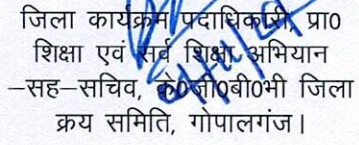 जिला कार्यक्रम पदाधिकारी, प्रा0
शिक्षा एवं सर्व शिक्षा अभियान
–सह–सचिव, के0जी0बी0भी जिला
क्रय समिति, गोपालगंज।